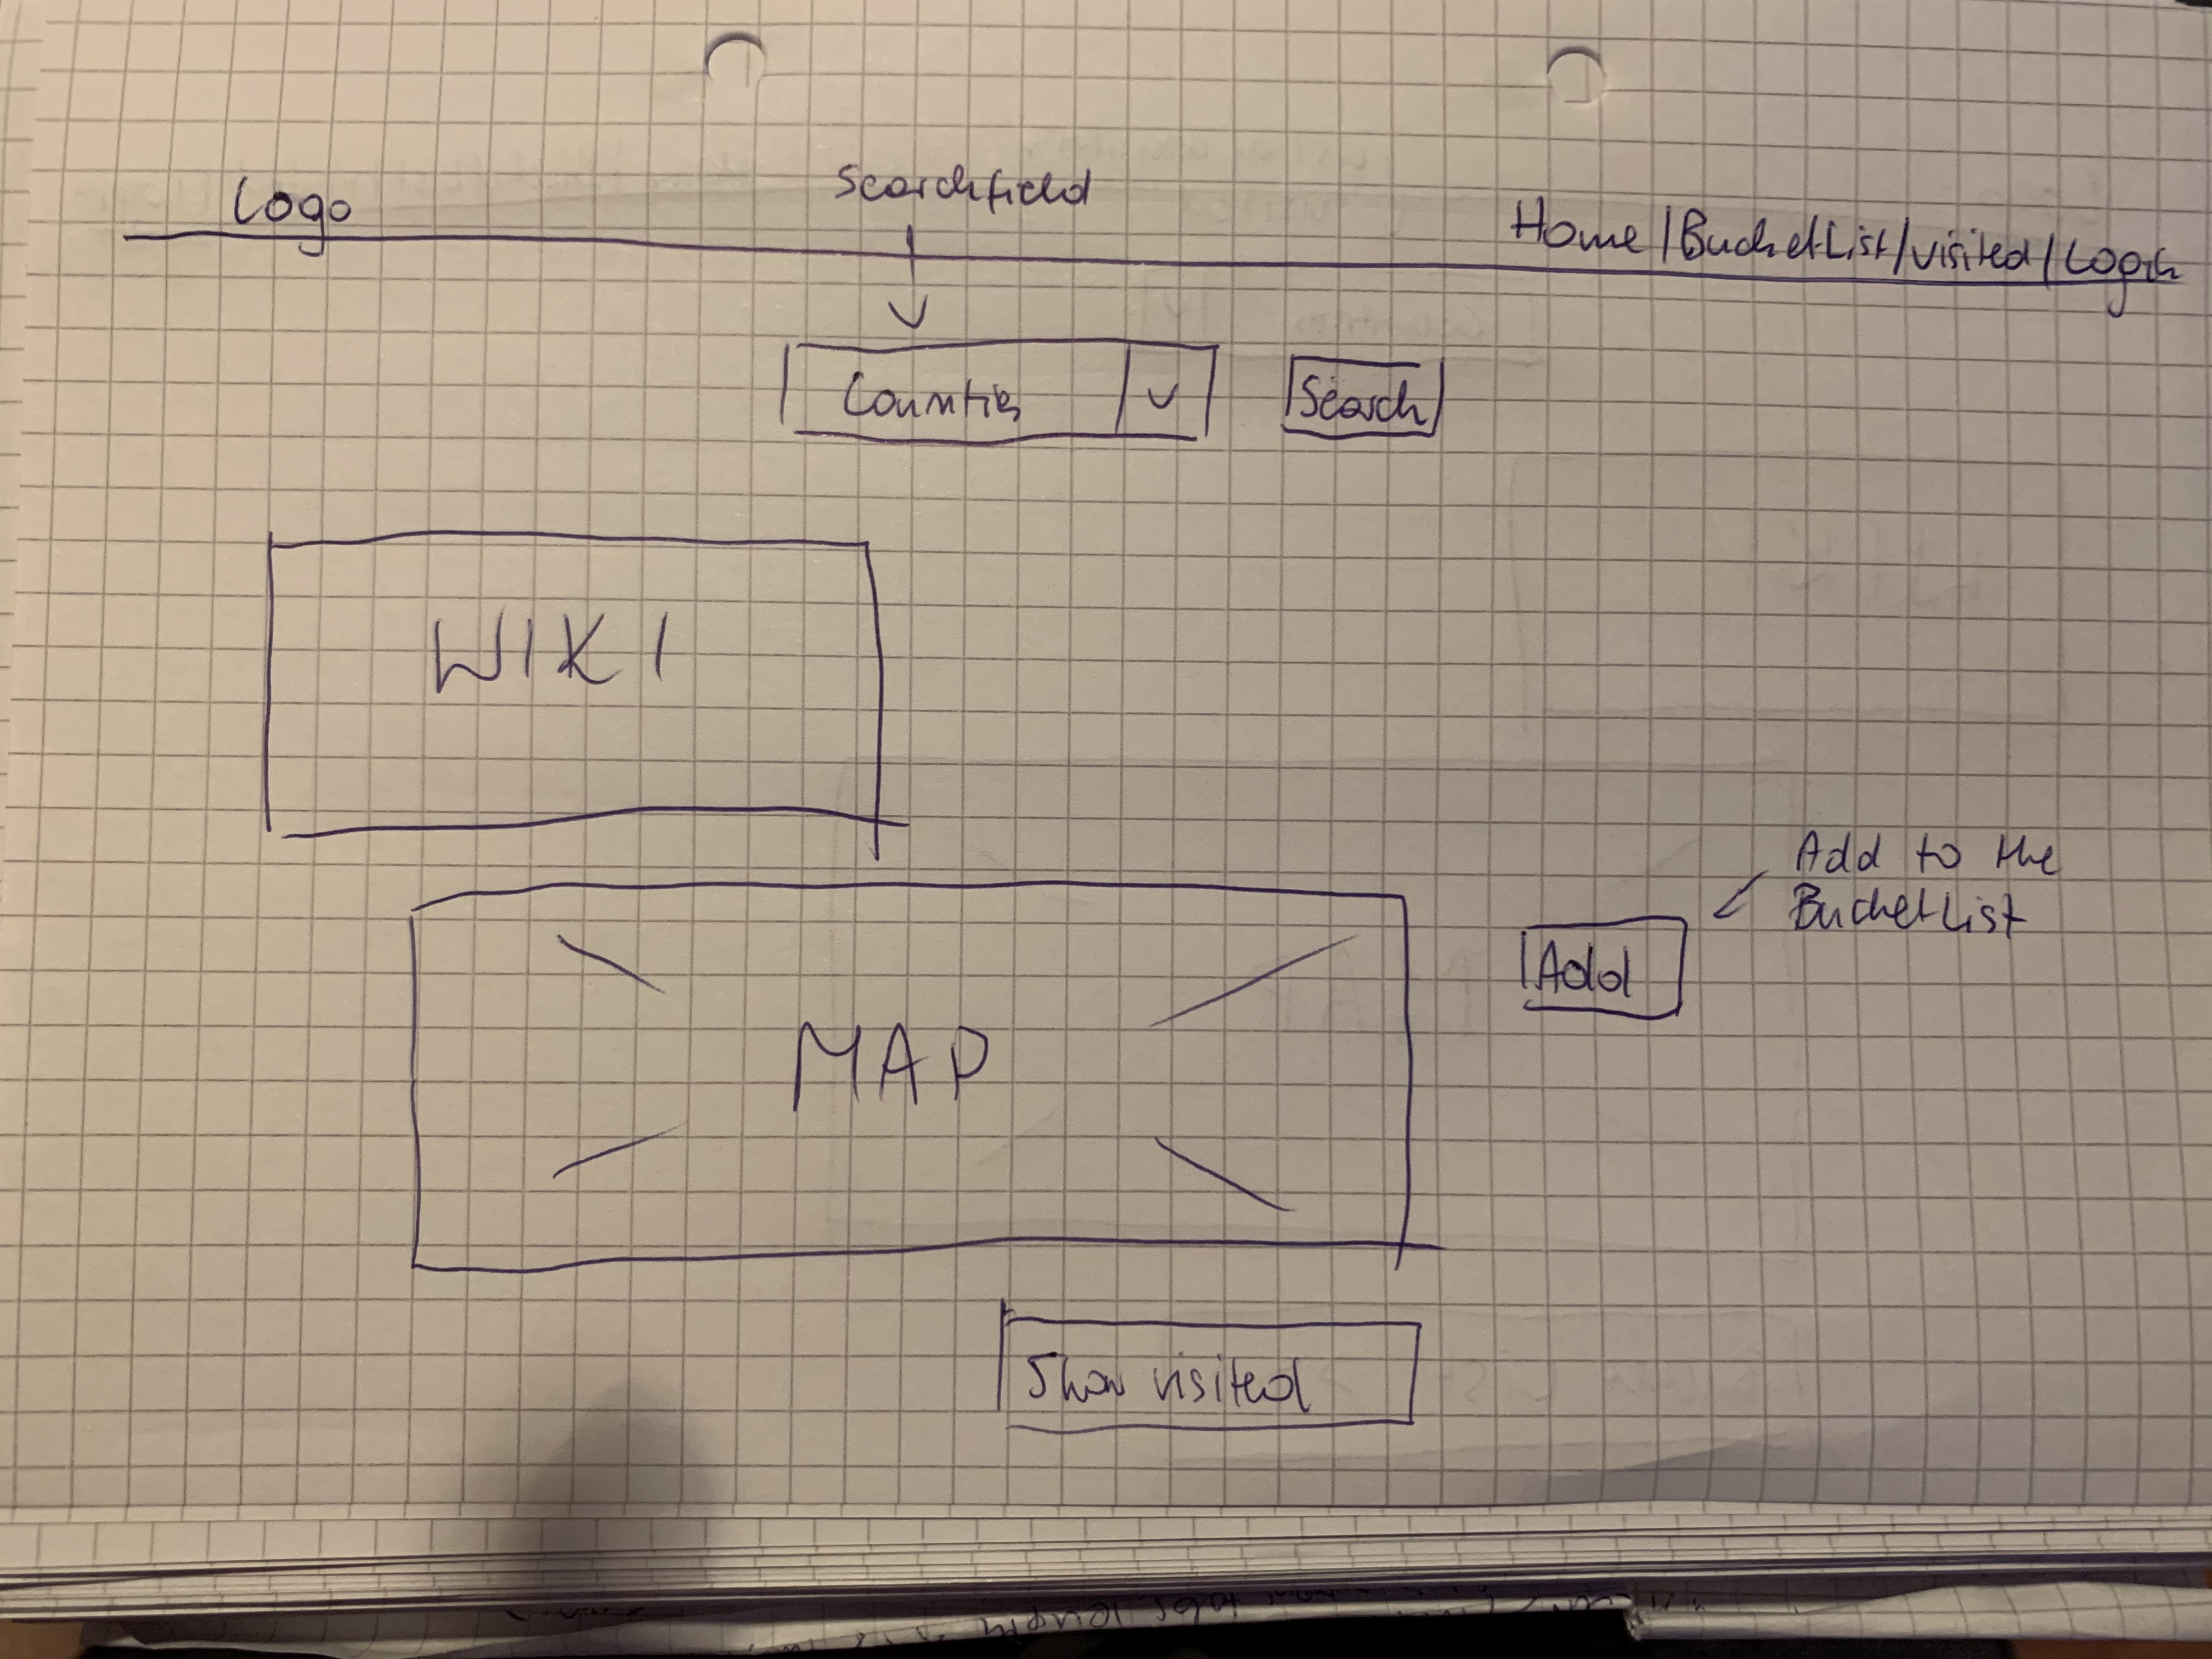 Logo
Searchfield
Home/BucketList/visited/Login
Counties
Search
WIKI
Add to the
BucketList
Add
MAP
Show visited